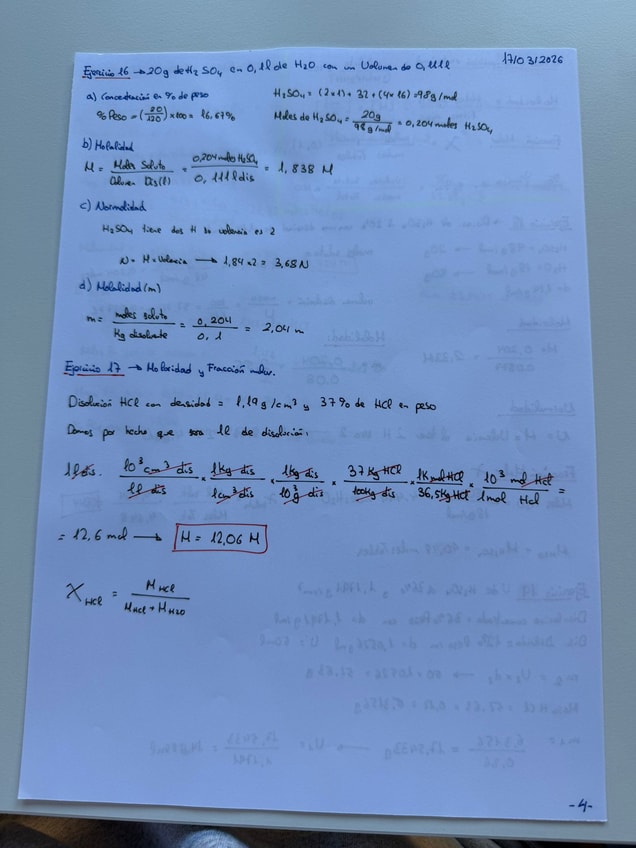 Ejercicio 16 → 20g de H₂SO₄ en 0,1l de H₂O con un Volumen de 0,111l
17/03/2026
a) Concentración en % de peso
H₂SO₄ = (2×1) + 32 + (4×16) = 98g/mol
% Peso = (20/120) × 100 = 16,67%
Moles de H₂SO₄ = 20g / 98g/mol = 0,204 moles H₂SO₄
b) Molalidad
M = Moles Soluto / Volumen Dis(l) = 0,204 moles H₂SO₄ / 0,111l dis = 1,838 M
c) Normalidad
H₂SO₄ tiene dos H su valencia es 2
N = M × Valencia → 1,84 × 2 = 3,68 N
d) Molalidad (m)
m = moles soluto / Kg disolvente = 0,204 / 0,1 = 2,04 m
Ejercicio 17 → Molaridad y Fracción molar.
Disolución HCl con densidad = 1,19g/cm³ y 37% de HCl en peso
Damos por hecho que sea 1l de disolución:
1l dis. 10³ cm³ dis / 1l dis × 1kg dis / 1cm³ dis × 1kg dis / 10³g dis × 37 Kg HCl / 100kg dis × 1K mol HCl / 36,5kg HCl × 10³ mol HCl / 1mol HCl =
= 12,6 mol → M = 12,06 M
X HCl = M HCl / M HCl + M H2O
-4-